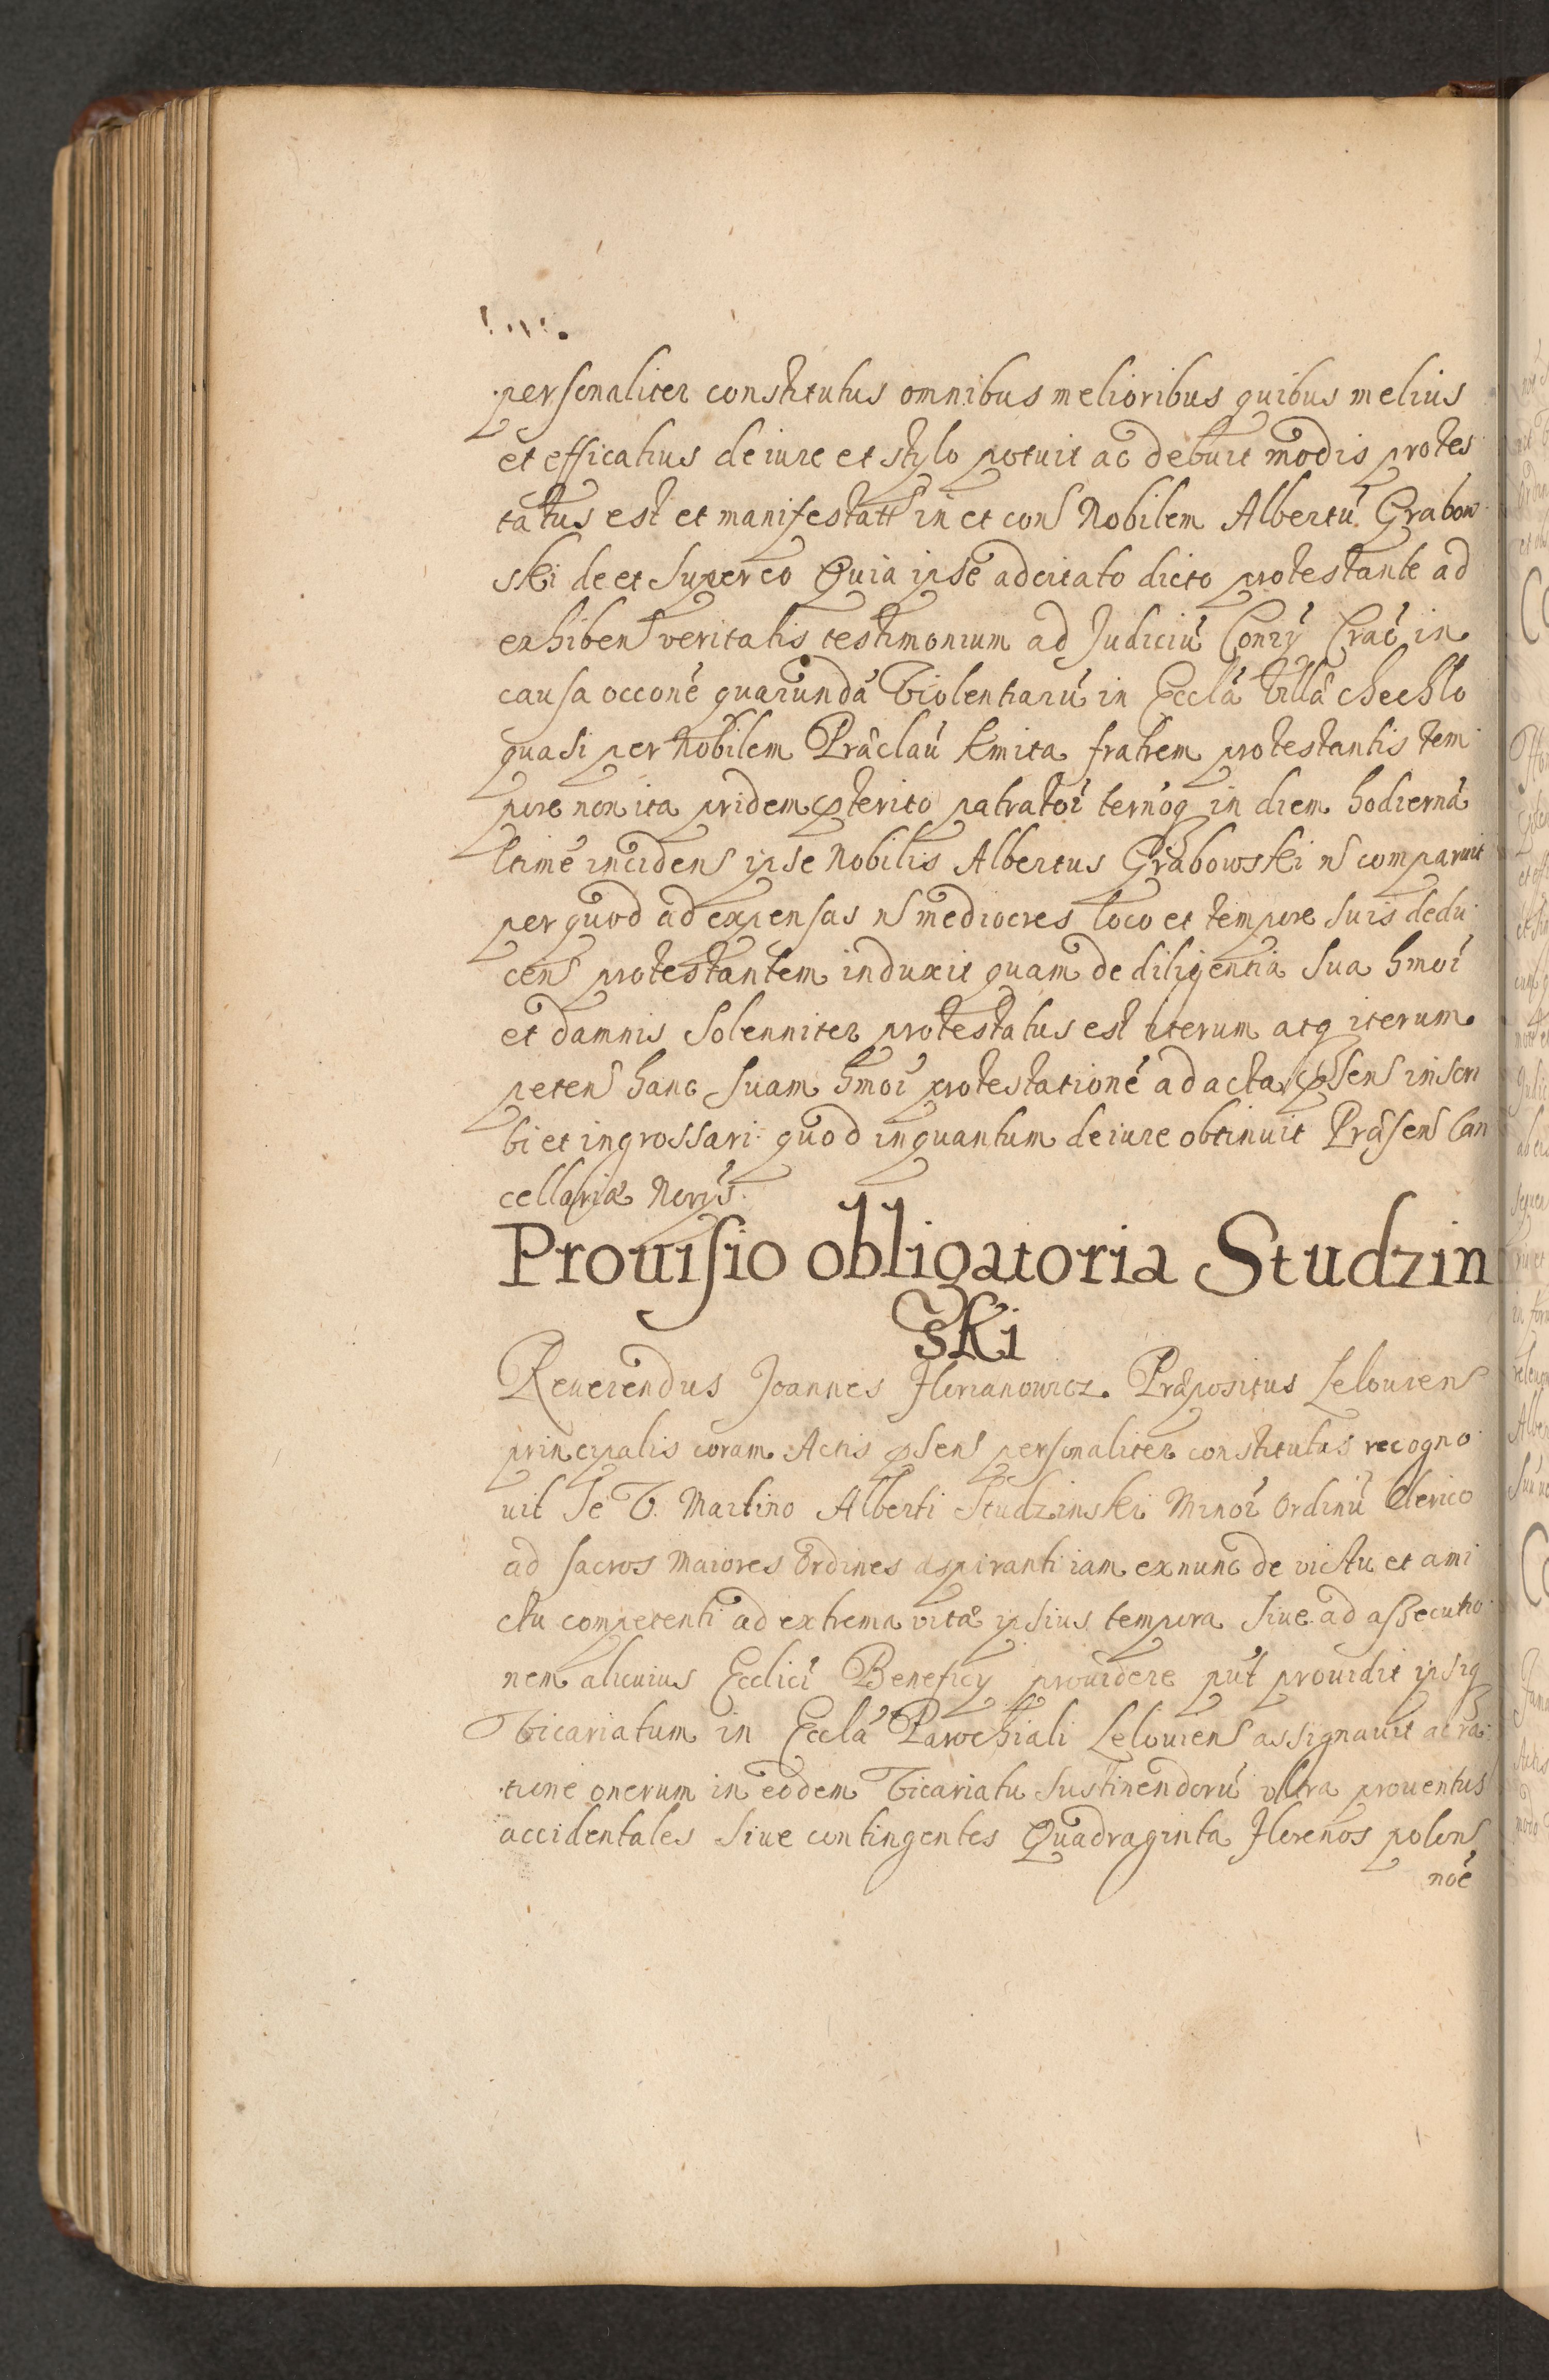 personaliter constitutus omnibus melioribus quibus melius
et efficatius de iure et stylo potuit ac debuit modis protes
tatus est et manifestatt in et cons Nobilem Albertu Grabow
ski de et super eo Quia ipse ad citato dicto protestante ad
exhibens veritatis testimonium ad Judiciu Conrÿ Crac in
causa occone quarunda Violentiaru in Eccla Villa chechlo
quasi per Nobilem Præclau Kmita fratrem protestantis tem
pore non ita pridem pterito patratoi ternoq in diem hodierna
ltime incidens ipse Nobilis Albertus Grabowski ns comparuit
per quod ad expensas ns mediocres loco et tempore suis dedu
cens protestantem induxit quam de diligentia sua hmoi
et damnis Solenniter protestatus est iterum atq iterum
petens hanc suam hmoi protestatione ad acta psens inscri
bi et ingrossari quod inquantum de iure obtinuit Præsens Can
cellariæ
Prouisio obligatoria Studzin
ski
Reuerendus Joannes Florianowicz. Præpositus Lelouiens
principalis coram Actis psens personaliter constitutus recogno
uit se V. Martino Alberti Studzinski Minoi Ordinu Clerico
ad sacros Maiores Ordines aspiranti iam ex nunc de victu et ami
ctu competenti ad extrema vitæ ipsius tempora siue ad assecutio
nem alicuius Ecclici Beneficÿ prouidere put prouidit ipsiq
Vicariatum in Eccla Parochiali Lelouiens assignauit ac ra
tione onerum in eodem Vicariatu sustinendoru vltra prouentus
accidentales siue contingentes Quadraginta Florenos polons
noe